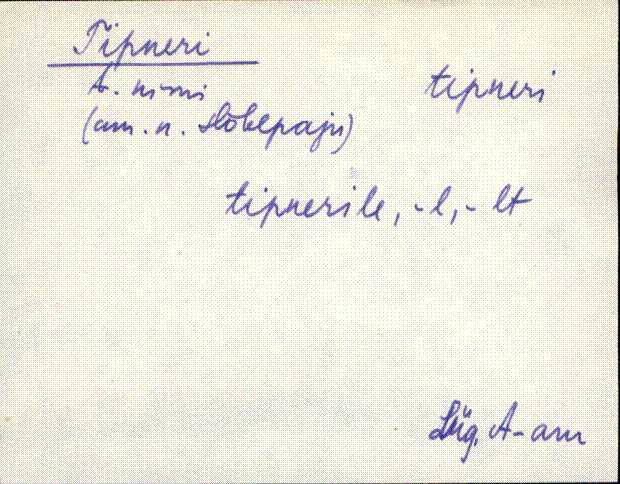 Tipneri
t. nimi
tipneri
(am. n. Sõbepaju)
tipnerile, -l, - lt
Lüg. A-am